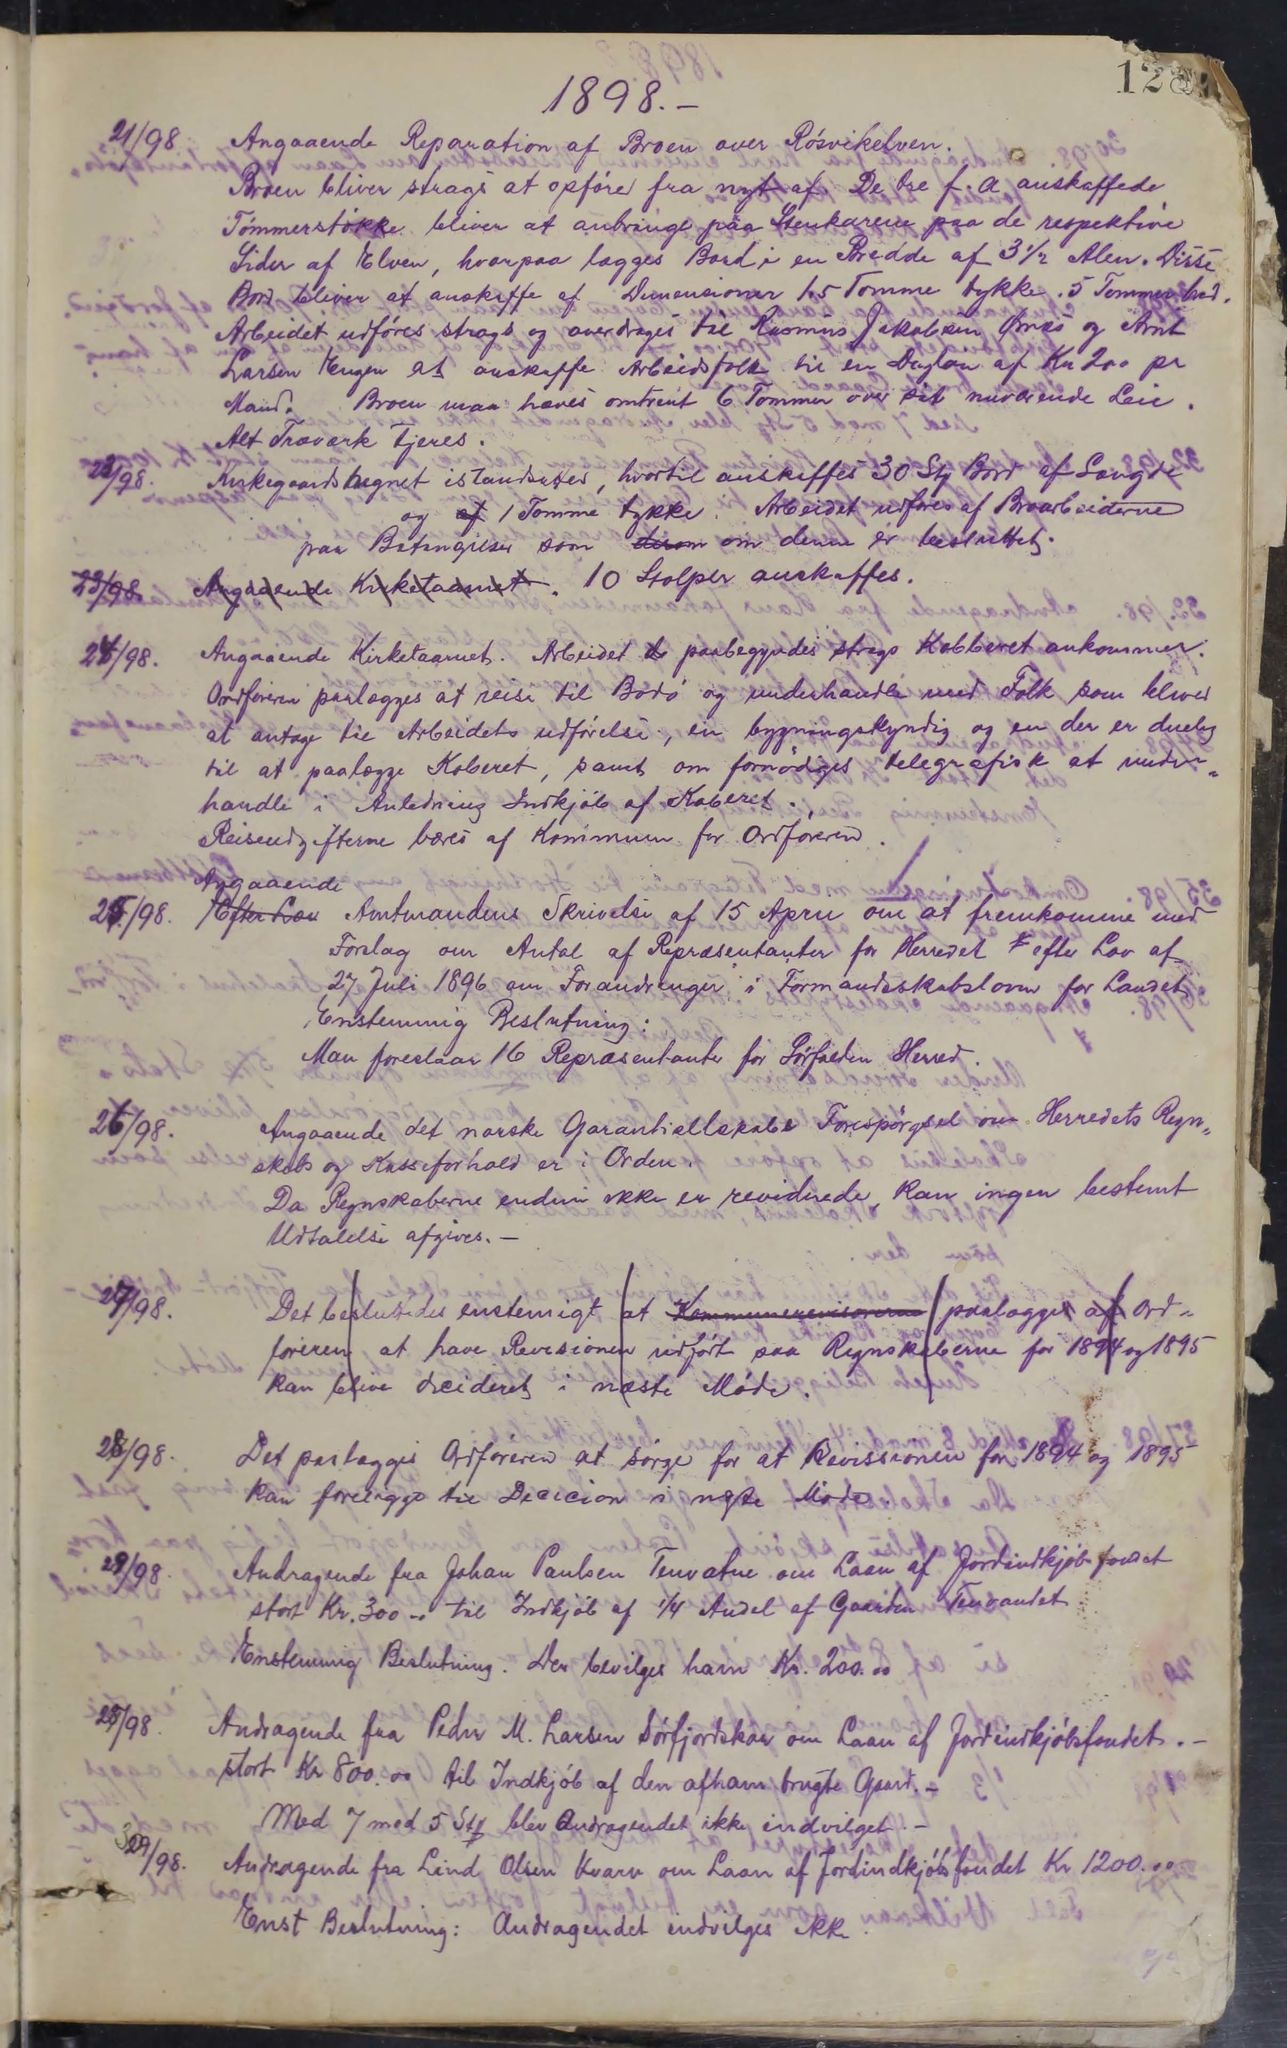 128
1898.–
21/98 Angaaende Reparation af Broen over Rösvikelven.
Broen bliver strags at opföre fra nyt af De tre f. a anskaffede
Tömmerstokke bliver at anbringe paa Stenkarene paa de respektive
Sider af Elven, hvorpaa lægges Bord i en Bredde af 3 1/2 Alen. Disse
Bord bliver at anskaffe af Dimensioner 1,5 Tomme tykke. 5 Tommer bred.
Arbeidet udföres strags og overdrages til Rasmus Jakobsen Örnæs og Arnt
Larsen Engen at anskaffe Arbeidsfolk til en Daglön af Kr 2,00 pr
Mand. Broen maa hæves omtrent 6 Tommer over sit nuværende Leie.
Alt Træværk tjæres.
22/98. Kirkegaardshegnet istandsættes, hvortil anskaffes 30 Stf Bord af Længde
og af 1 Tomme tykke. Arbeidet udföres af Broarbeiderne
paa Betingelser som derom om denne er besluttet.
23/98. Angaaende Kirketaarnet. 10 Stolper anskaffes.
24/98. Angaaende Kirketaarnet. Arbeidet paabegyndes strags Kobberet ankommer.
Ordföreren paalægges at reise til Bodö og underhandle med Folk som bliver
at antage til Arbeidets udförelse, en bygningskyndig og en der er duelig
til at paalægge Koberet, samt om fornödiges telegrafisk at under-
handle i Anledning Indkjöb af Koberet.
Reiseudgifterne bæres af Kommunen for Ordföreren.
Angaaende
25/98. Efter Lov Amtmandens Skrivelse af 15 April om at fremkomme med
Forslag om Antal af Repræsentanter for Herredet efter Lov af
27 Juli 1896 om Forandringer i Formandsskabsloven for Landet
Enstemmig Beslutning:
Man foreslaar 16 Repræsentanter for Sörfolden Herred.
26/98. Angaaende det norske Garantiselskabs Forespörgsel om Herredets Regn-
skab og Kasseforhold er i Orden.
Da Regnskaberne endnu ikke er reviderede, kan ingen bestemt
Udtalelse afgives.–
27/98. Det besluttedes enstemigt at Kommunerevisorerne paalægges af Ord-
föreren at have Revisionen udfört paa Regnskaberne for 1894 og 1895
kan blive decideret i næste Möde.
28/98. Det paalægges Ordföreren at sörge for at Revissionen for 1894 og 1895
kan foreligge til Decicion i næste Möde.
29/98. Andragende fra Johan Paulsen Tenvatne om Laan af Jordindkjöbsfondet
stort Kr. 300 – til Indkjöb af 1/4 Andel af Gaarden Tenvandet
Enstemmig Beslutning. Der bevilges ham Kr. 200.00
28/98. Andragende fra Peder M. Larsen Sörfjordskar om Laan af Jordindkjöbsfondet.–
stort Kr 800.00 til Indkjöb af den afham brugte Gaard.–
Med 7 mod 5 Stf blev Andragendet ikke indvilget.–
29/98. Andragende fra Lind Olsen Kvarv om Laan af Jordindkjöbsfondet Kr 1200.00
Enst Beslutning: Andragendet indvilges ikke.